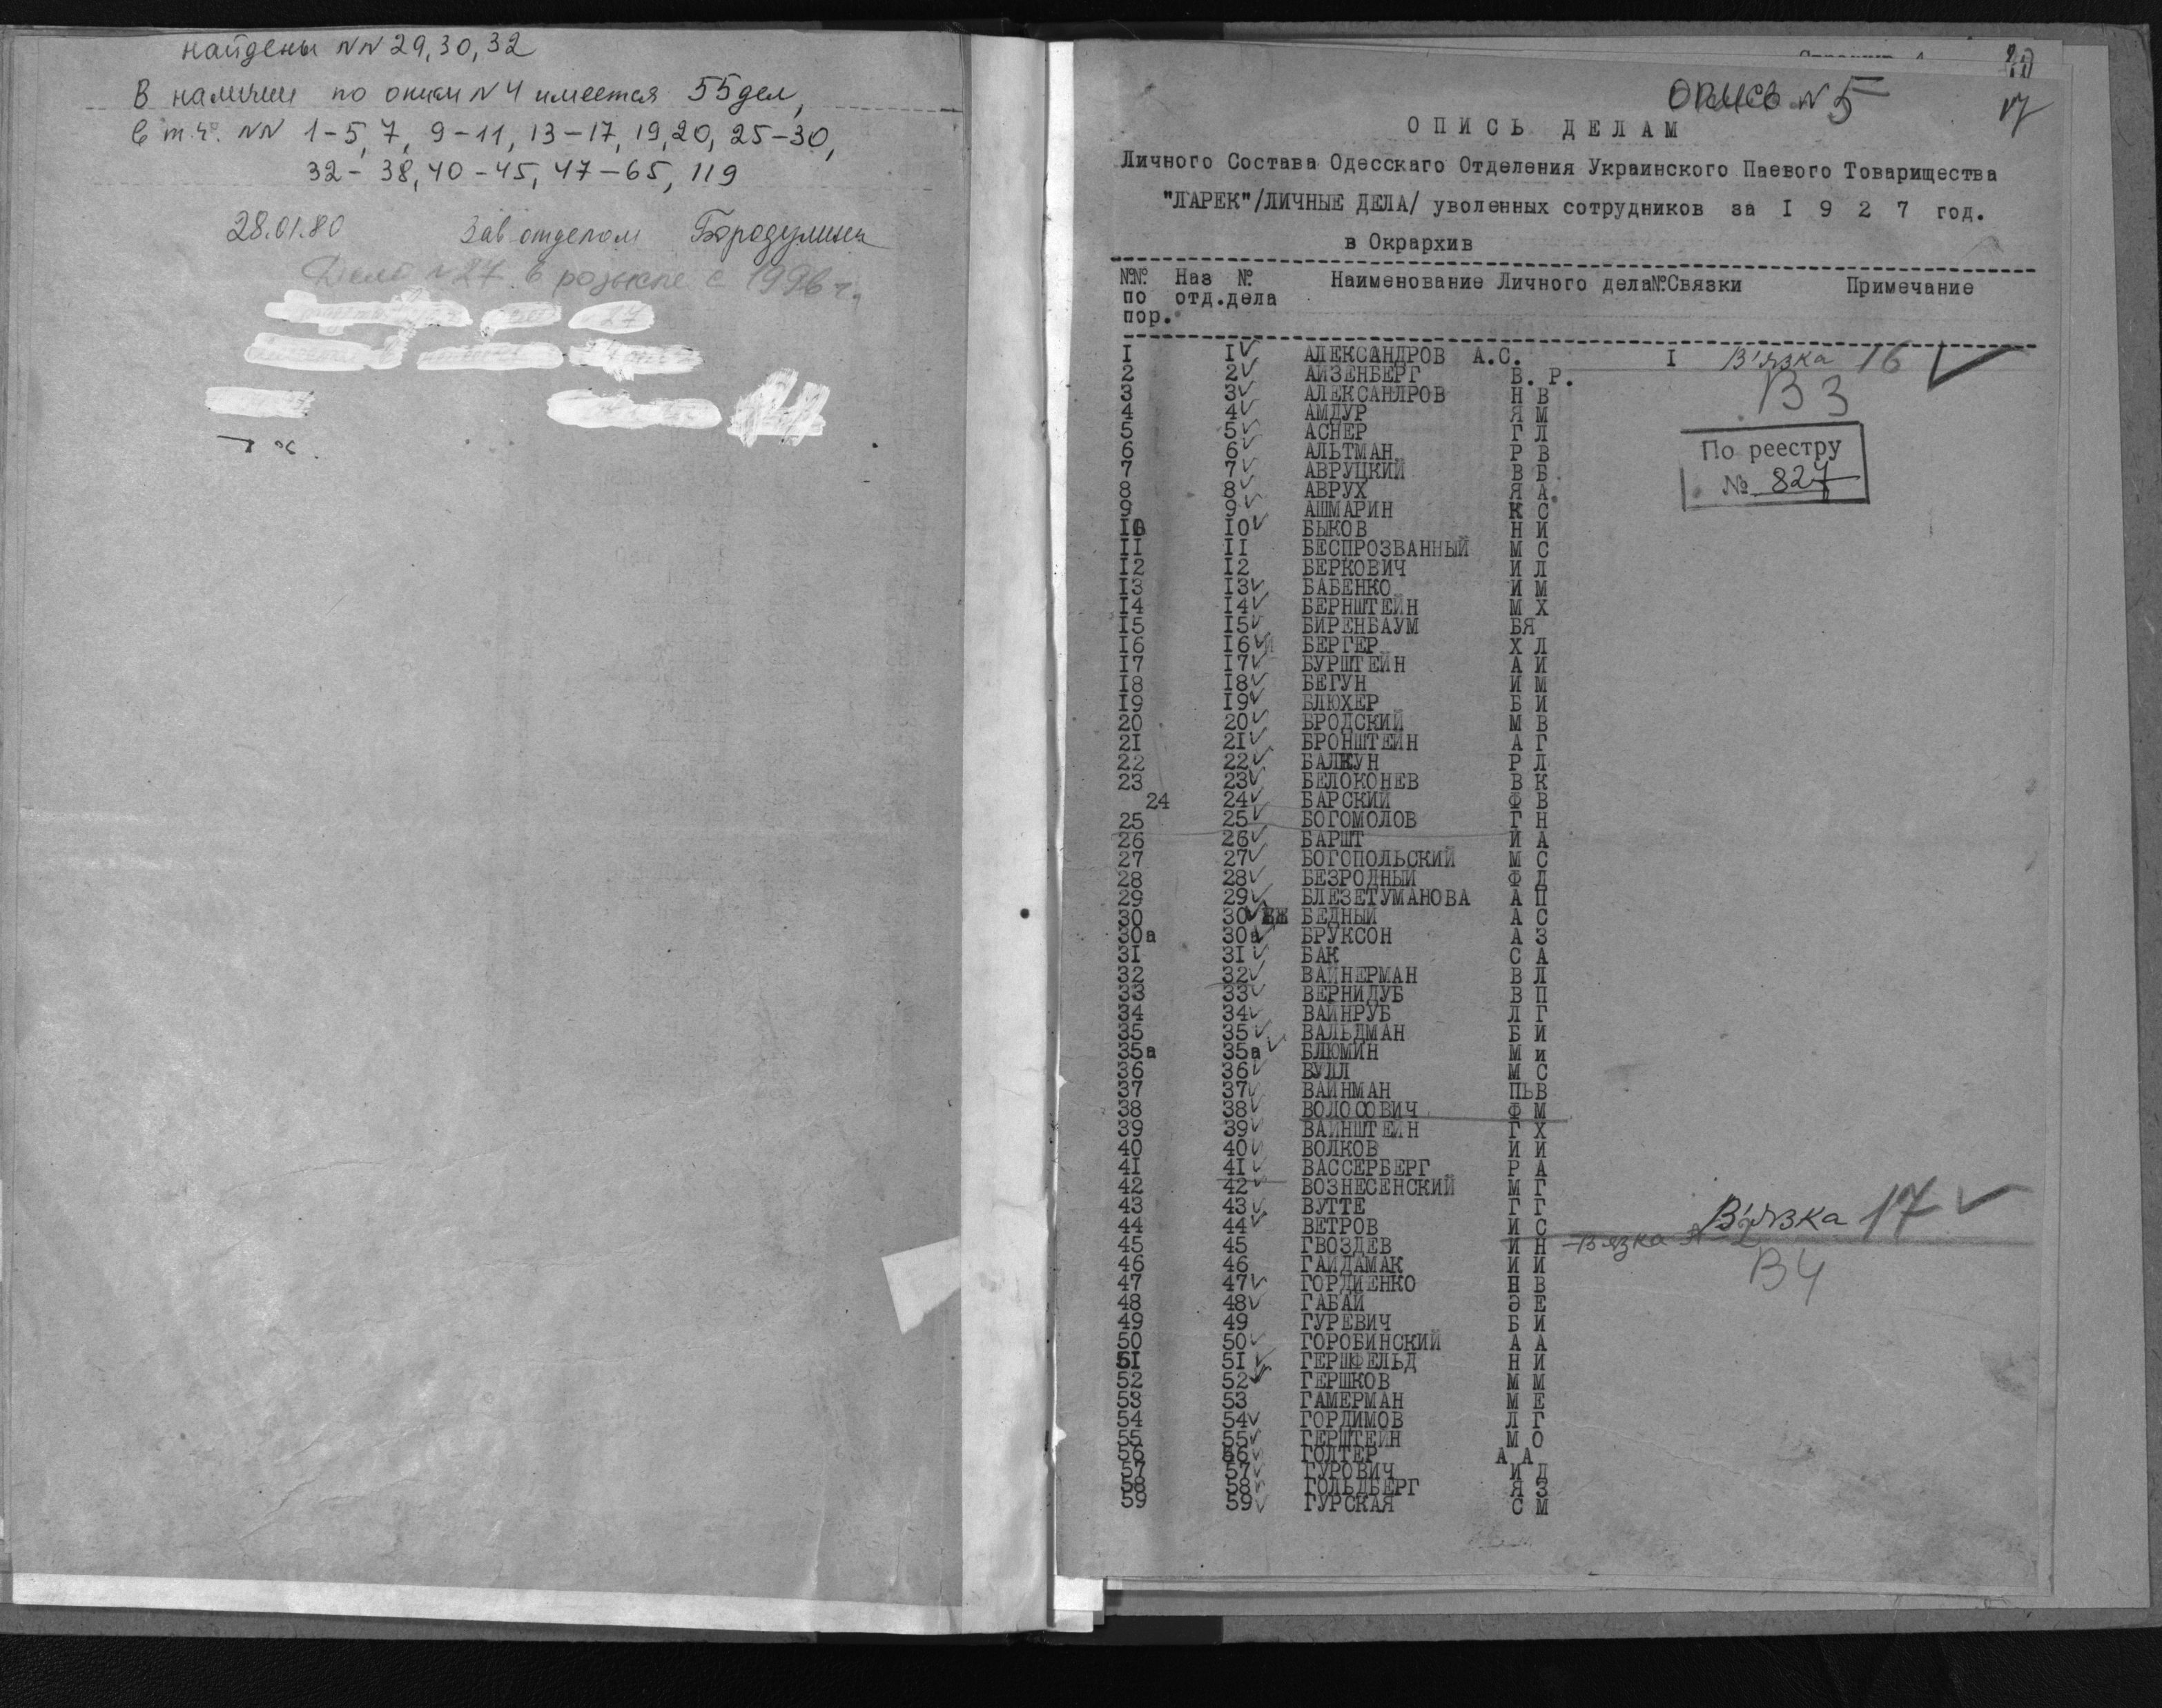 найдены NN 29, 30, 32
В наличии по описи N 4 имеется 55 дел,
в т.ч. NN 1-5, 7, 9-11, 13-17, 19, 20, 25-30,
32-38, 40-45, 47-65, 119
28.01.80 Зав отделом Бородулина
Дело N 27 в розыске с 1996 г.
опись N 5
17
ОПИСЬ ДЕЛАМ
Личного Состава Одесскаго Отделения Украинского Паевого Товарищества
"ЛАРЕК"/ЛИЧНЫЕ ДЕЛА/ уволенных сотрудников за I 9 2 7 год.
в Окрархив
№№ Наз № Наименование Личного дела №Связки Примечание
по отд. дела
пор.
I I АЛЕКСАНДРОВ А.С. I В'язка 16
2 2 АЙЗЕНБЕРГ В. Р.
3 3 АЛЕКСАНДРОВ Н В В3
4 4 АМДУР Я М
5 5 АСНЕР Г Л
6 6 АЛЬТМАН Р В По реестру
7 7 АВРУЦКИЙ В Б № 827
8 8 АВРУХ Я А.
9 9 АШМАРИН К С
I0 I0 БЫКОВ Н И
II II БЕСПРОЗВАННЫЙ М С
I2 I2 БЕРКОВИЧ И Л
I3 I3 БАБЕНКО И М
I4 I4 БЕРНШТЕЙН М Х
I5 I5 БИРЕНБАУМ БЯ
I6 I6 БЕРГЕР Х Л
I7 I7 БУРШТЕЙН А И
I8 I8 БЕГУН И М
I9 I9 БЛЮХЕР Б И
20 20 БРОДСКИЙ М В
2I 2I БРОНШТЕЙН А Г
22 22 БАЛКУН Р Л
23 23 БЕЛОКОНЕВ В К
24 24 БАРСКИЙ Ф В
25 25 БОГОМОЛОВ Г Н
26 26 БАРШТ И А
27 27 БОГОПОЛЬСКИЙ М С
28 28 БЕЗРОДНЫЙ Ф Д
29 29 БЛЕЗЕТУМАНОВА А П
30 30 БЕДНЫЙ А С
30а 30а БРУКСОН А З
3I 3I БАК С А
32 32 ВАЙНЕРМАН В Л
33 33 ВЕРНИДУБ В П
34 34 ВАЙНРУБ Л Г
35 35 ВАЛЬДМАН Б И
35а 35а БЛЮМИН М и
36 36 ВУЛЛ М С
37 37 ВАЙНМАН ПЬВ
38 38 ВОЛОСОВИЧ Ф М
39 39 ВАЙНШТЕЙН Г Х
40 40 ВОЛКОВ И И
4I 4I ВАССЕРБЕРГ Р А
42 42 ВОЗНЕСЕНСКИЙ М Г
43 43 ВУТТЕ Г Г В'язка 17
44 44 ВЕТРОВ И С
45 45 ГВОЗДЕВ И Н Вязка № 2
46 46 ГАЙДАМАК И И В4
47 47 ГОРДИЕНКО Н В
48 48 ГАБАЙ Э Е
49 49 ГУРЕВИЧ Б И
50 50 ГОРОБИНСКИЙ А А
5I 5I ГЕРШФЕЛЬД Н И
52 52 ГЕРШКОВ М М
53 53 ГАМЕРМАН М Е
54 54 ГОРДИМОВ Л Г
55 55 ГЕРШТЕЙН М О
56 56 ГОЛТЕР А А
57 57 ГУРОВИЧ И Д
58 58 ГОЛЬДБЕРГ Я З
59 59 ГУРСКАЯ С М